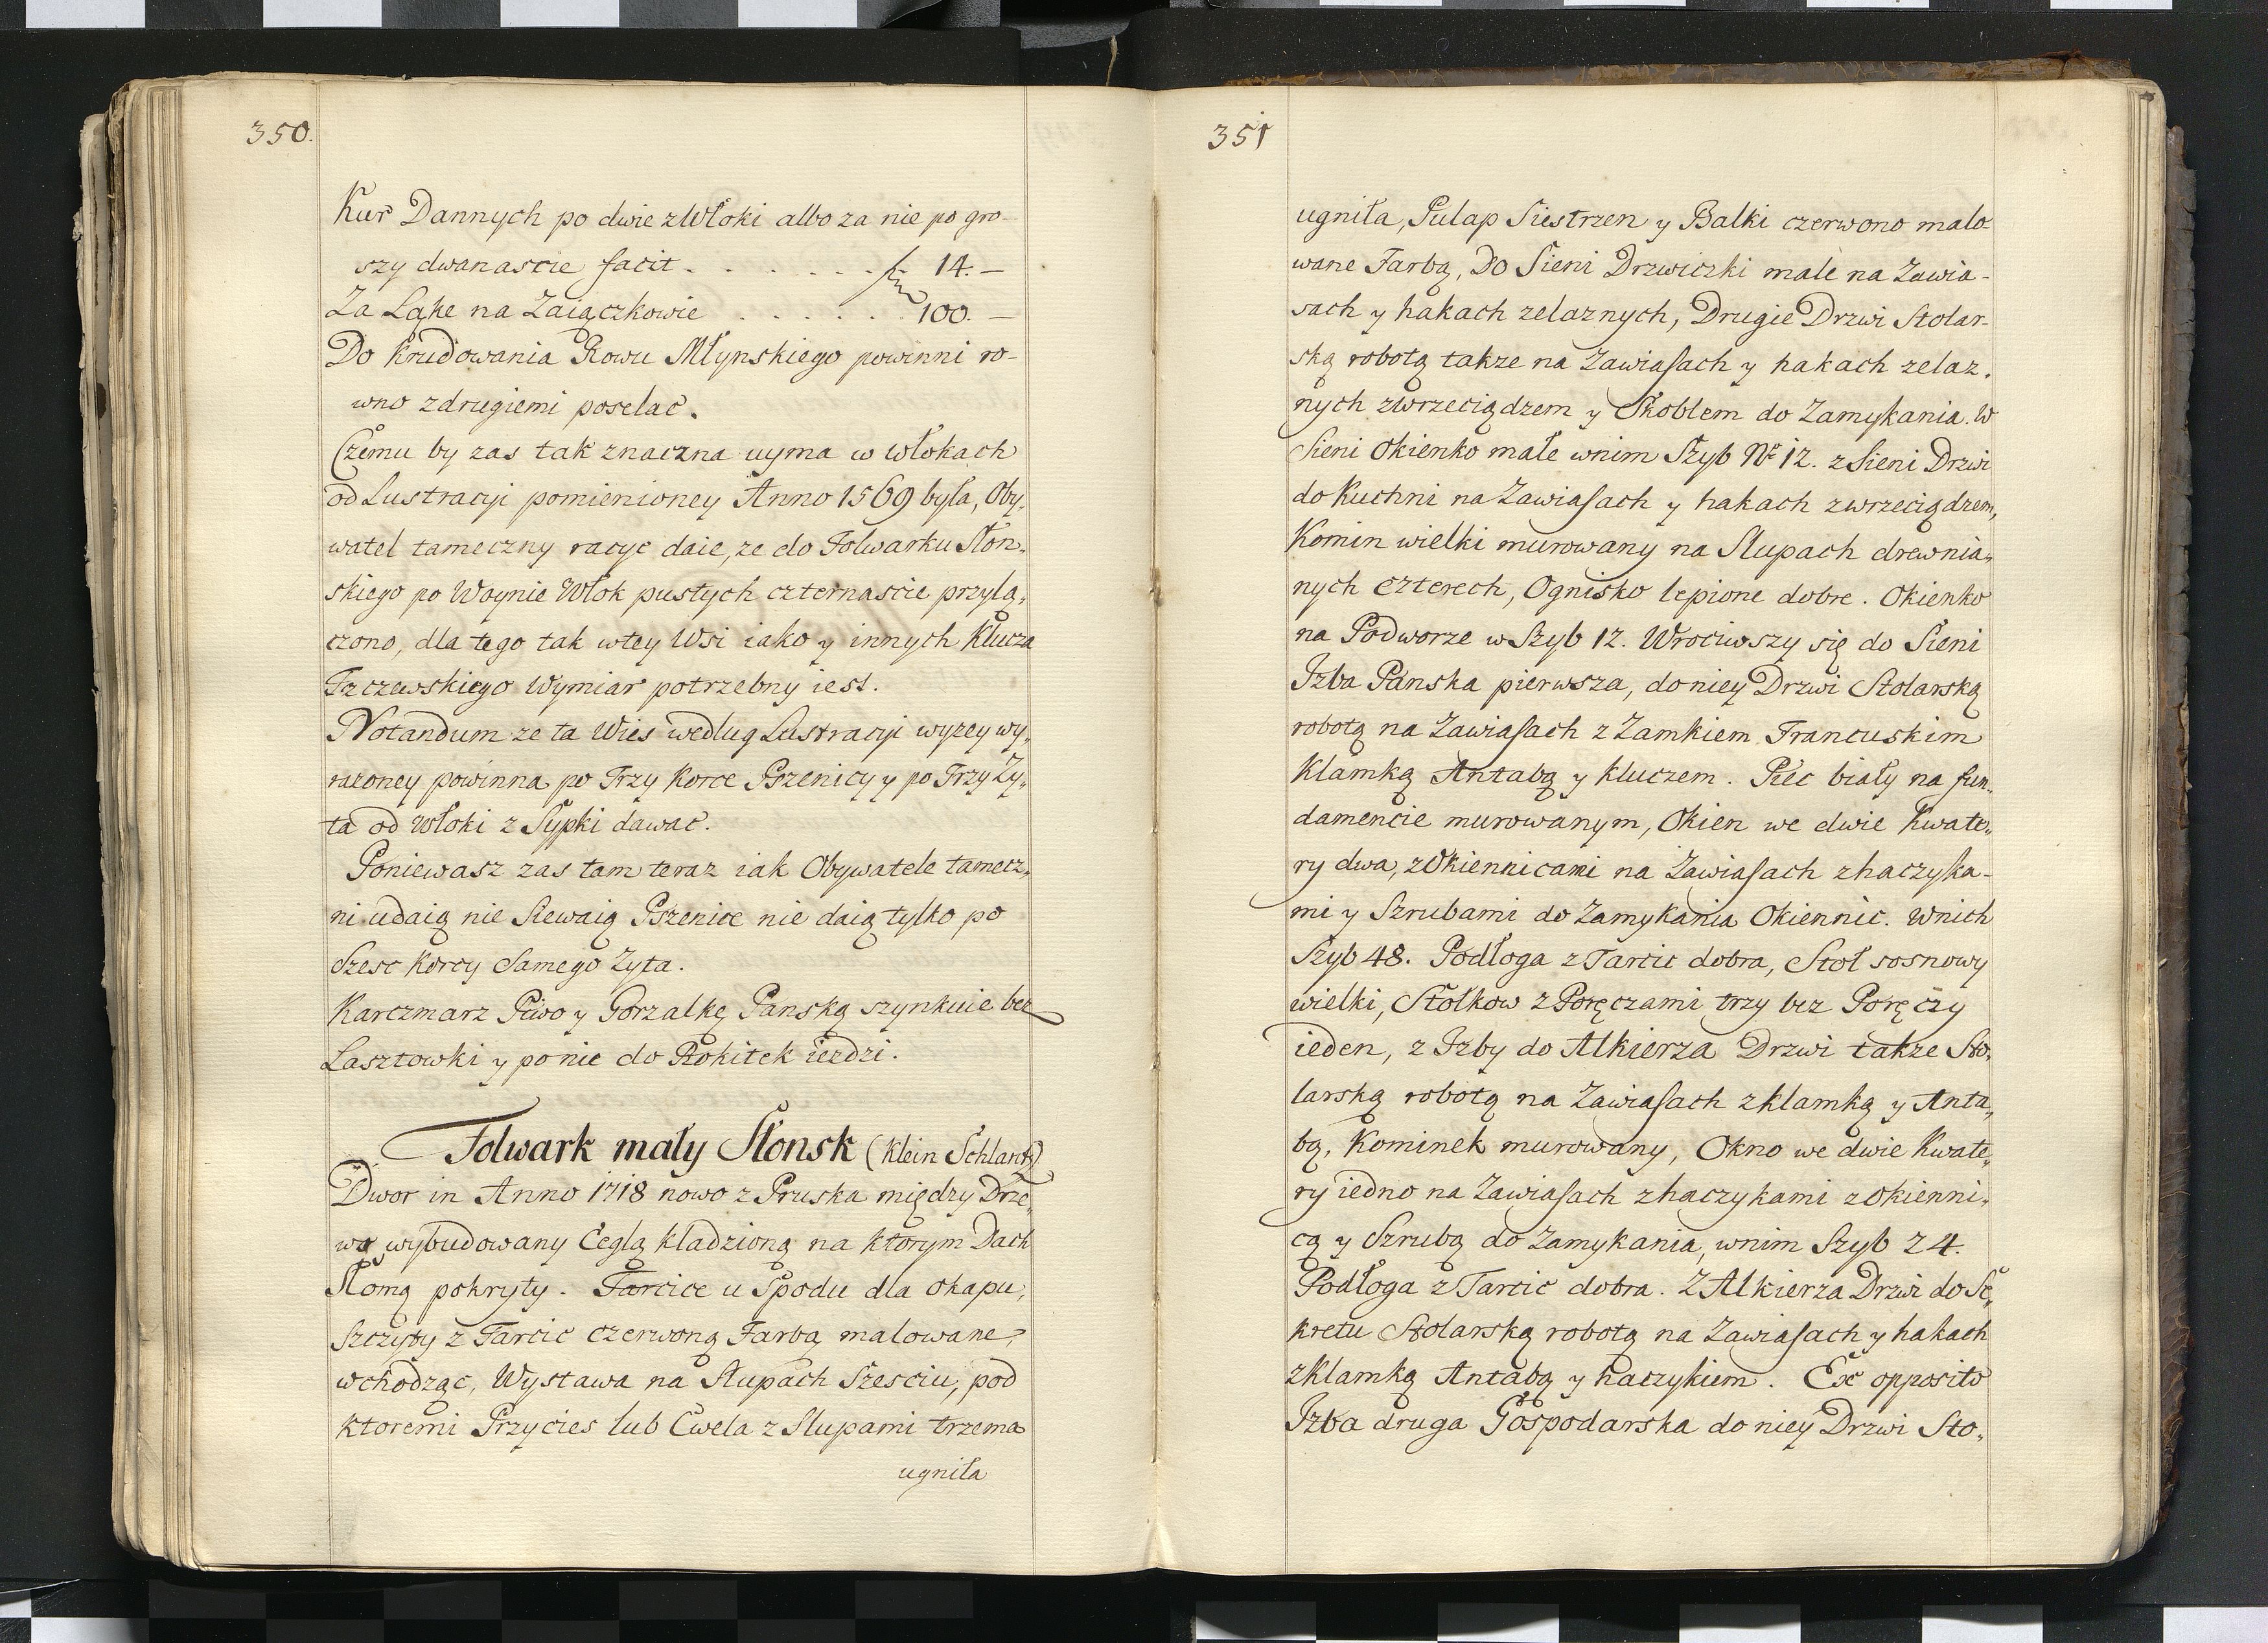 350.
Kur Dannych po dwie z Włoki albo za nie po gro-
szy dwanascie facit . . . . . . . f. 14. —
Za Łąke na Zaiączkowie . . . . . . 100. —
Do krudowania Rowu Młynskiego powinni ro-
wno z drugiemi poselac.
Czemu by zas tak znaczna uyma w włokach
od Lustracyi pomienioney Anno 1569 była, Oby-
watel tameczny racyc daie, ze do Folwarku Słon-
skiego po Woynie Włok pustych czternascie przyłą-
czono, dla tego tak w tey Wsi iako y innych Klucza
Tczewskiego Wymiar potrzebny iest.
Notandum ze ta Wies według Lustracyi wyzey wy-
razoney powinna po Trzy Korce Pszenicy y po Trzy Zy-
ta od Włoki z Sypki dawac.
Poniewasz zas tam teraz iak Obywatele tamecz-
ni udaią nie Siewaią Pszenice nie daią tylko po
Szesc Korcy Samego Zyta.
Karczmarz Piwo y Gorzalkę Panską szynkuie bez
Lasztowki y po nie do Rokitek iezdzi.
Folwark mały Słonsk (Klein Schlantz)
Dwor in Anno 1718 nowo z Pruska między Drze-
wo wybudowany Cegłą kladzioną na ktorym Dach
Słomą pokryty. Tarcice u Spodu dla okapu,
Szczyty z Tarcic czerwoną Farbą malowane,
wchodząc, Wystawa na Słupach Szesciu, pod
ktoremi Przycies lub Cwela z Slupami trzema
ugniła
351
ugniła, Pulap Siestrzen y Balki czerwono malo-
wane Farbą, Do Sieni Drzwiczki male na Zawia-
sach y hakach zelaznych, Drugie Drzwi Stolar-
ską robotą takze na Zawiasach y hakach zelaz-
nych z wrzeciądzem y Skoblem do Zamykania. W
Sieni Okienko małe w nim Szyb No 12. z Sieni Drzwi
do Kuchni na Zawiasach y hakach z wrzeciądzem,
Komin wielki murowany na Slupach drewnia-
nych czterech, Ognisko lepione dobre. Okienko
na Podworze w Szyb 12. Wrociwszy się do Sieni
Izba Panska pierwsza, do niey Drzwi Stolarską
robotą na Zawiasach z Zamkiem Francuskim
Klamką Antabą y kluczem. Piec biały na fun-
damencie murowanym, Okien we dwie Kwate-
ry dwa, z Okiennicami na Zawiasach z haczyka-
mi y Szrubami do Zamykania Okiennic. W nich
Szyb 48. Podłoga z Tarcic dobra, Stoł sosnowy
wielki, Stołkow z Poręczami trzy bez Poręczy
ieden, z Izby do Alkierza Drzwi takze Sto-
larską robotą na Zawiasach z klamką y Anta-
bą, Kominek murowany, Okno we dwie Kwate-
ry iedno na Zawiasach z haczykami z okienni-
cą y Szrubą do Zamykania, w nim Szyb 24.
Podłoga z Tarcic dobra. Z Alkierza Drzwi do Se-
kretu Stolarską robotą na Zawiasach y hakach
z Klamką Antabą y haczykiem. Ex opposito
Izba druga Gospodarska do niey Drzwi Sto-